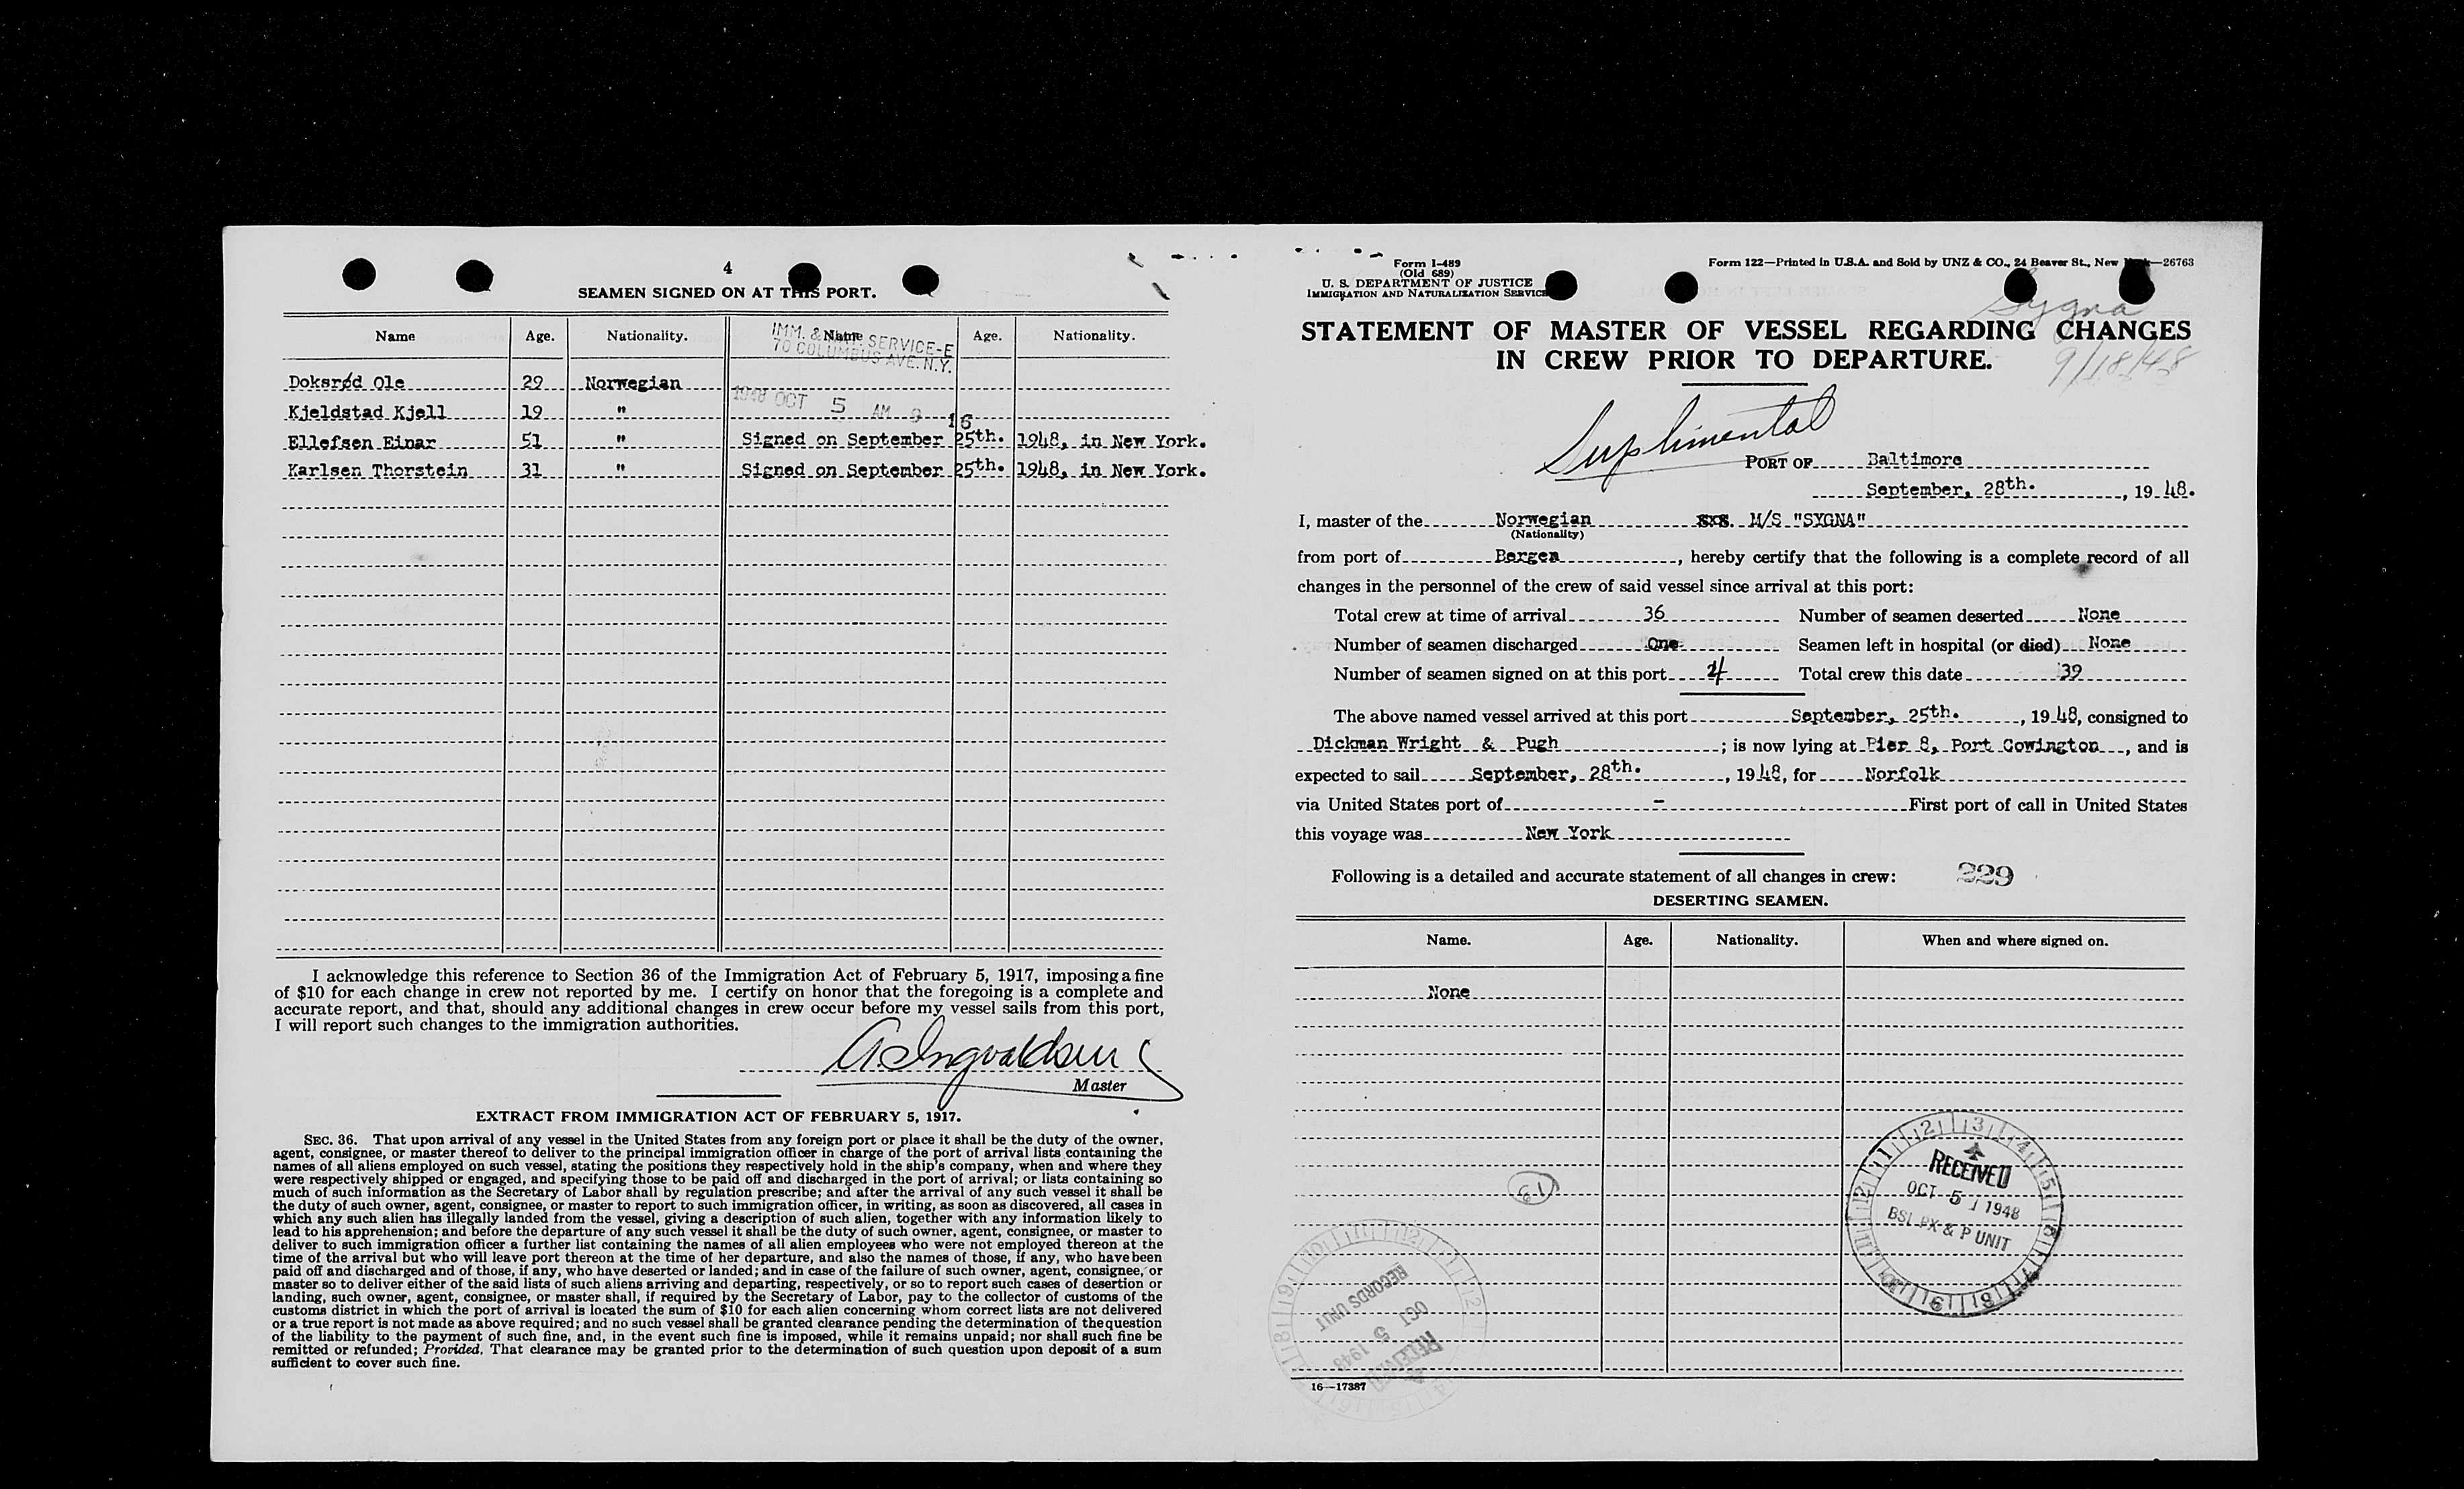 4
SEAMEN SIGNED ON AT THIS PORT.
Name Age. Nationality. Name Age. Nationality.
IMM. & NAT. SERVICE-E
70 COLUMBUS AVE. N.Y.
Doksrød Ole 29 Norwegian
1948 OCT 5 AM 9 16
Kjeldstad Kjell 19 "
Ellefsen Einar 51 " Signed on September 25th. 1948, in New York.
Karlsen Thorstein 31 " Signed on September 25th. 1948, in New York.
I acknowledge this reference to Section 36 of the Immigration Act of February 5, 1917, imposing a fine
of $10 for each change in crew not reported by me. I certify on honor that the foregoing is a complete and
accurate report, and that, should any additional changes in crew occur before my vessel sails from this port,
I will report such changes to the immigration authorities.
Ingvaldsen
Master
EXTRACT FROM IMMIGRATION ACT OF FEBRUARY 5, 1917.
SEC. 36. That upon arrival of any vessel in the United States from any foreign port or place it shall be the duty of the owner,
agent, consignee, or master thereof to deliver to the principal immigration officer in charge of the port of arrival lists containing the
names of all aliens employed on such vessel, stating the positions they respectively hold in the ship's company, when and where they
were respectively shipped or engaged, and specifying those to be paid off and discharged in the port of arrival; or lists containing so
much of such information as the Secretary of Labor shall by regulation prescribe; and after the arrival of any such vessel it shall be
the duty of such owner, agent, consignee, or master to report to such immigration officer, in writing, as soon as discovered, all cases in
which any such alien has illegally landed from the vessel, giving a description of such alien, together with any information likely to
lead to his apprehension; and before the departure of any such vessel it shall be the duty of such owner, agent, consignee, or master to
deliver to such immigration officer a further list containing the names of all alien employees who were not employed thereon at the
time of the arrival but who will leave port thereon at the time of her departure, and also the names of those, if any, who have been
paid off and discharged and of those, if any, who have deserted or landed; and in case of the failure of such owner, agent, consignee, or
master so to deliver either of the said lists of such aliens arriving and departing, respectively, or so to report such cases of desertion or
landing, such owner, agent, consignee, or master shall, if required by the Secretary of Labor, pay to the collector of customs of the
customs district in which the port of arrival is located the sum of $10 for each alien concerning whom correct lists are not delivered
or a true report is not made as above required; and no such vessel shall be granted clearance pending the determination of the question
of the liability to the payment of such fine, and, in the event such fine is imposed, while it remains unpaid; nor shall such fine be
remitted or refunded; Provided, That clearance may be granted prior to the determination of such question upon deposit of a sum
sufficient to cover such fine.
Form I-489
(Old 689)
U. S. DEPARTMENT OF JUSTICE
IMMIGRATION AND NATURALIZATION SERVICE
Form 122—Printed in U.S.A. and Sold by UNZ & CO., 24 Beaver St., New York—26763
Sygna
STATEMENT OF MASTER OF VESSEL REGARDING CHANGES
IN CREW PRIOR TO DEPARTURE.
9/18/48
Suplimental
PORT OF Baltimore
September, 28th. , 19 48.
I, master of the Norwegian M/S "SYGNA"
(Nationality)
from port of Bergen , hereby certify that the following is a complete record of all
changes in the personnel of the crew of said vessel since arrival at this port:
Total crew at time of arrival 36 Number of seamen deserted None
Number of seamen discharged One Seamen left in hospital (or died) None
Number of seamen signed on at this port 4 Total crew this date 39
The above named vessel arrived at this port September, 25th. , 19 48, consigned to
Dickman Wright & Pugh ; is now lying at Pier 8, Port Cowington , and is
expected to sail September, 28th. , 19 48, for Norfolk
via United States port of - First port of call in United States
this voyage was New York
Following is a detailed and accurate statement of all changes in crew: 229
DESERTING SEAMEN.
Name. Age. Nationality. When and where signed on.
None
RECEIVED
OCT 5 1948
BSI PX & P UNIT
RECEIVED
OCT 5 1948
RECORDS UNIT
16—17387